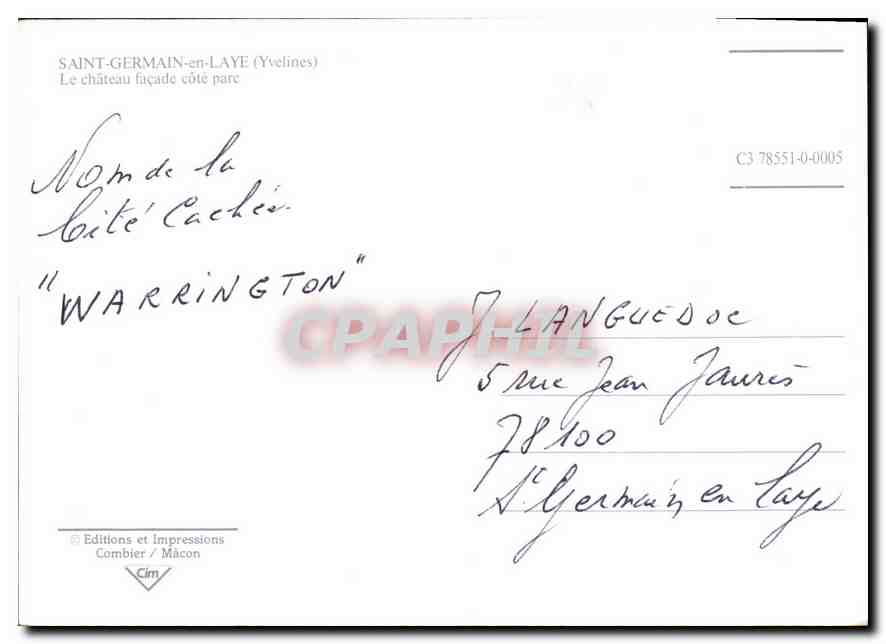 SAINT-GERMAIN-en-LAYE (Yvelines)
Le château façade côté parc
C3 78551-0-0005
Nom de la
Cité Cachée.
"WARRINGTON"
CPAPHIL
J LANGUEDOC
5 rue Jean Jaurès
78100
St Germain en Laye
© Editions et Impressions
Combier / Mâcon
Cim